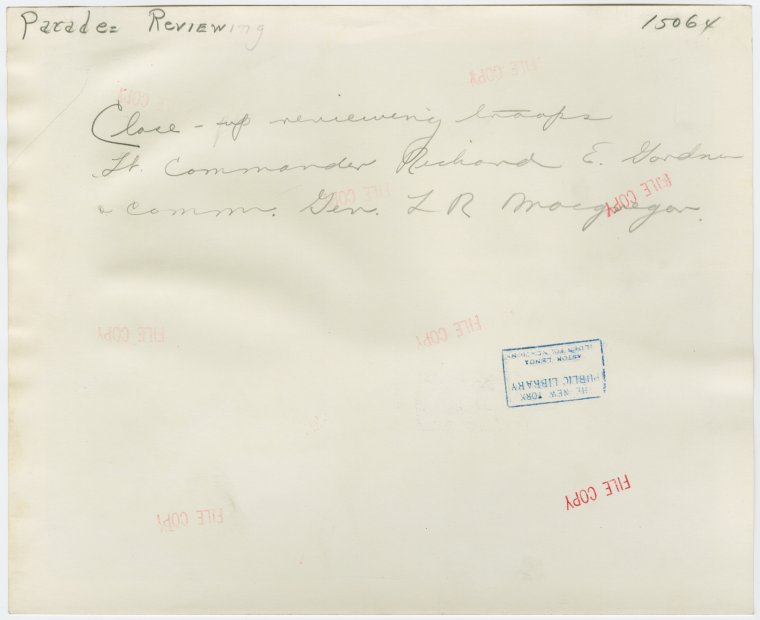 Parade: Reviewing
15064
Close-up reviewing troops
Lt. Commander Richard E. Gardner
& Comm. Gen. L R Macgregor.
FILE COPY
FILE COPY
FILE COPY
FILE COPY
FILE COPY
FILE COPY
THE NEW YORK
PUBLIC LIBRARY
ASTOR, LENOX
TILDEN FOUNDATIONS
FILE COPY
FILE COPY